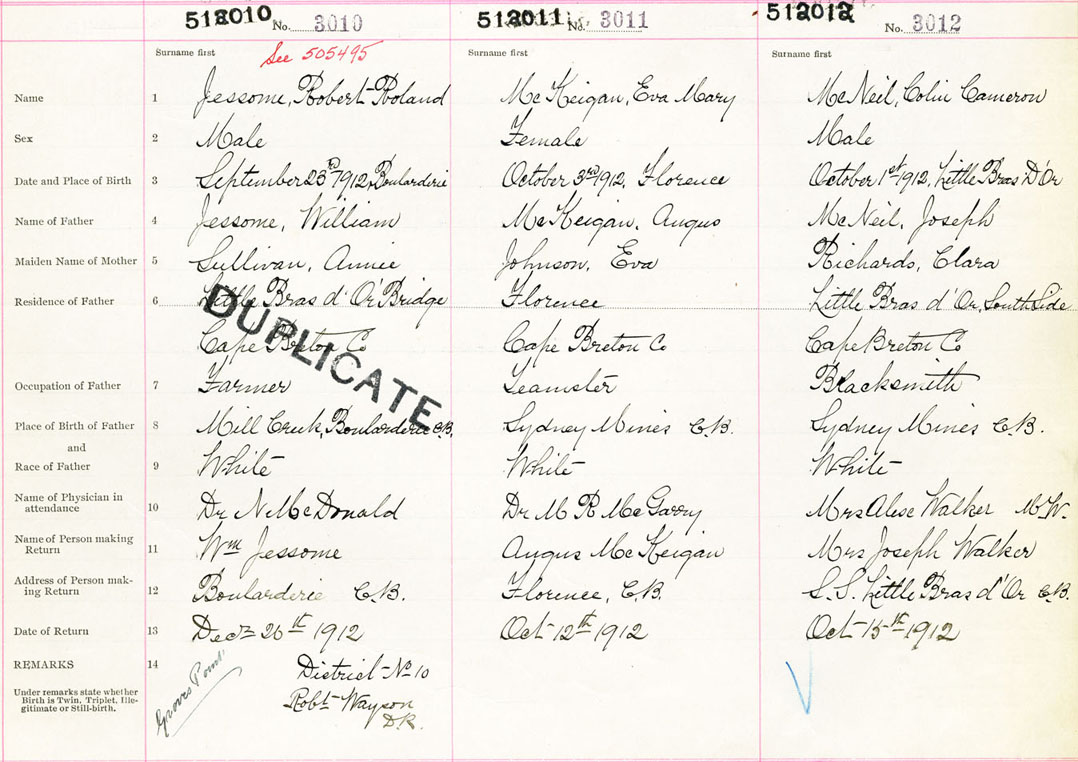 512010 No. 3010
512011 No. 3011
512012 No. 3012
Surname first
Surname first
Surname first
See 505495
Name 1 Jessome, Robert Roland
McKeigan, Eva Mary
McNeil, Colin Cameron
Sex 2 Male
Female
Male
Date and Place of Birth 3 September 23rd 1912, Boularderie
October 3rd 1912, Florence
October 1st 1912, Little Bras D'Or
Name of Father 4 Jessome, William
McKeigan, Angus
McNeil, Joseph
Maiden Name of Mother 5 Sullivan, Annie
Johnson, Eva
Richards, Clara
Residence of Father 6 Little Bras d'Or Bridge
Florence
Little Bras d'Or, South Side
Cape Breton Co
Cape Breton Co
Cape Breton Co
DUPLICATE
Occupation of Father 7 Farmer
Teamster
Blacksmith
Place of Birth of Father 8 Mill Creek, Boularderie C.B.
Sydney Mines C.B.
Sydney Mines C.B.
and
Race of Father 9 White
White
White
Name of Physician in
attendance 10 Dr N McDonald
Dr M R McGarry
Mrs Walker M.W.
Name of Person making
Return 11 Wm Jessome
Angus McKeigan
Mrs Joseph Walker
Address of Person mak-
ing Return 12 Boularderie C.B.
Florence, C.B.
S.S. Little Bras d'Or C.B.
Date of Return 13 Dec 26th 1912
Oct 12th 1912
Oct 15th 1912
REMARKS 14 District No 10
Under remarks state whether
Birth is Twin, Triplet, Ille-
gitimate or Still-birth.
Robt Wayson
D.R.
Groves Point